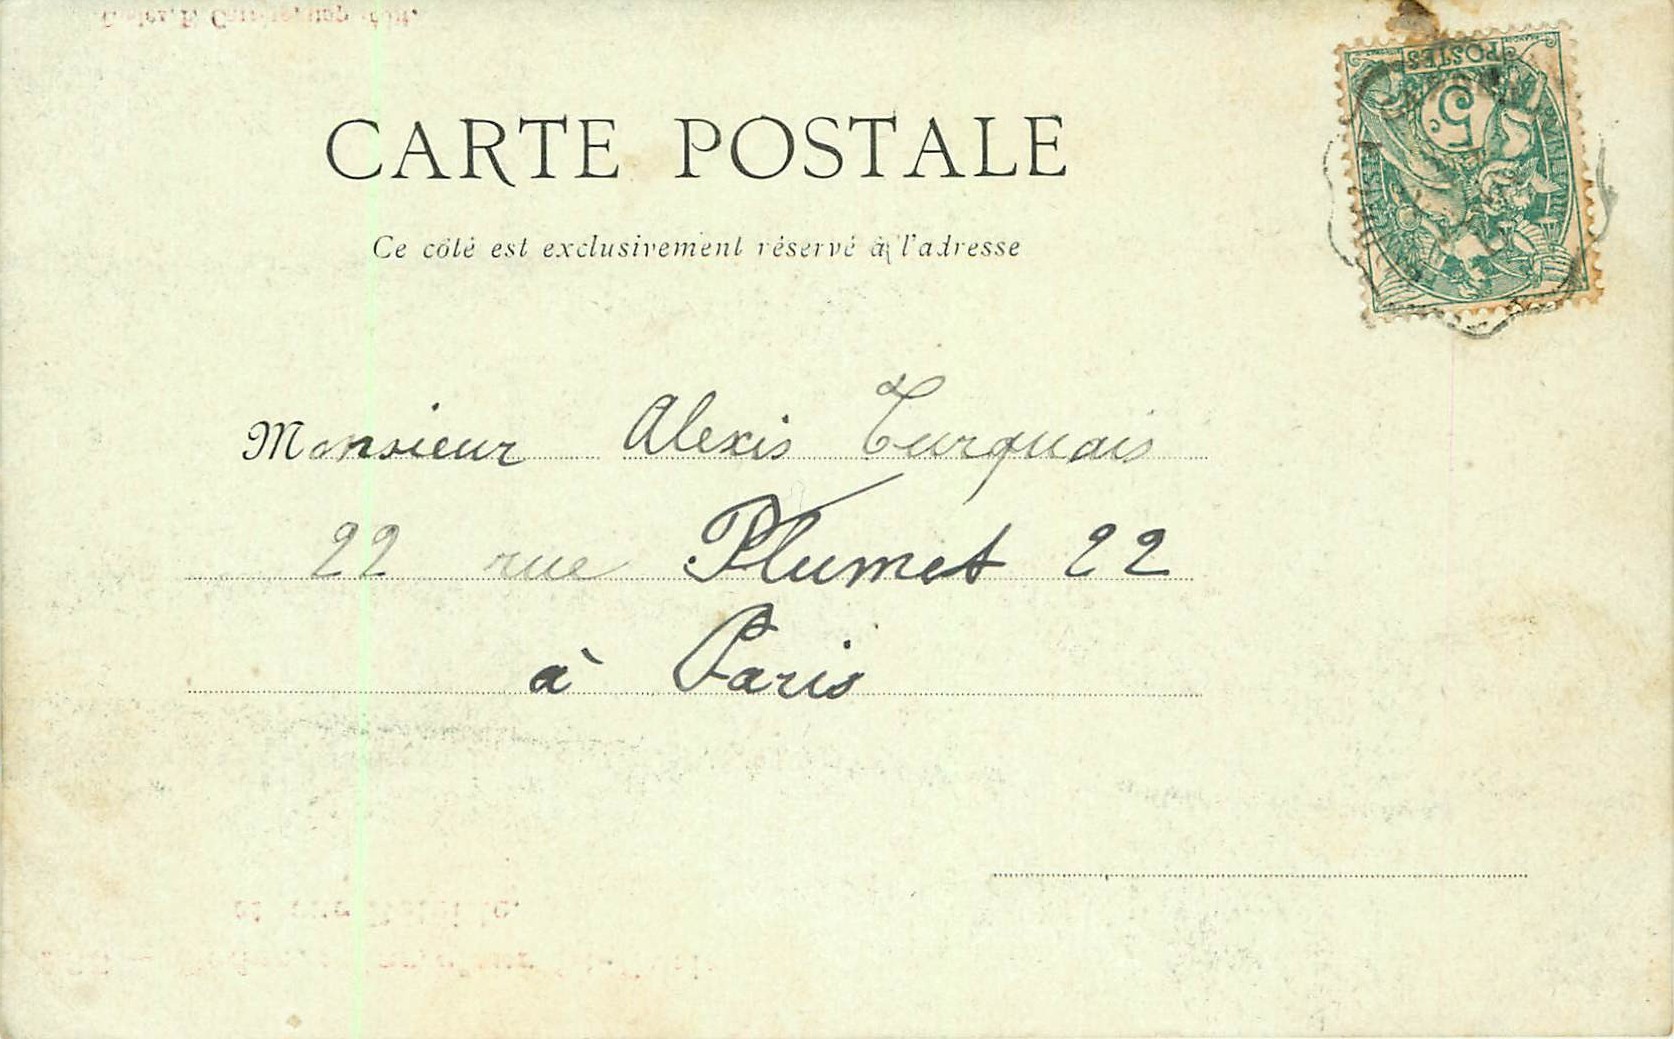 CARTE POSTALE
Ce côté est exclusivement réservé à l'adresse
POSTES
5
Monsieur Alexis Turquais
22 rue Plumet 22
à Paris